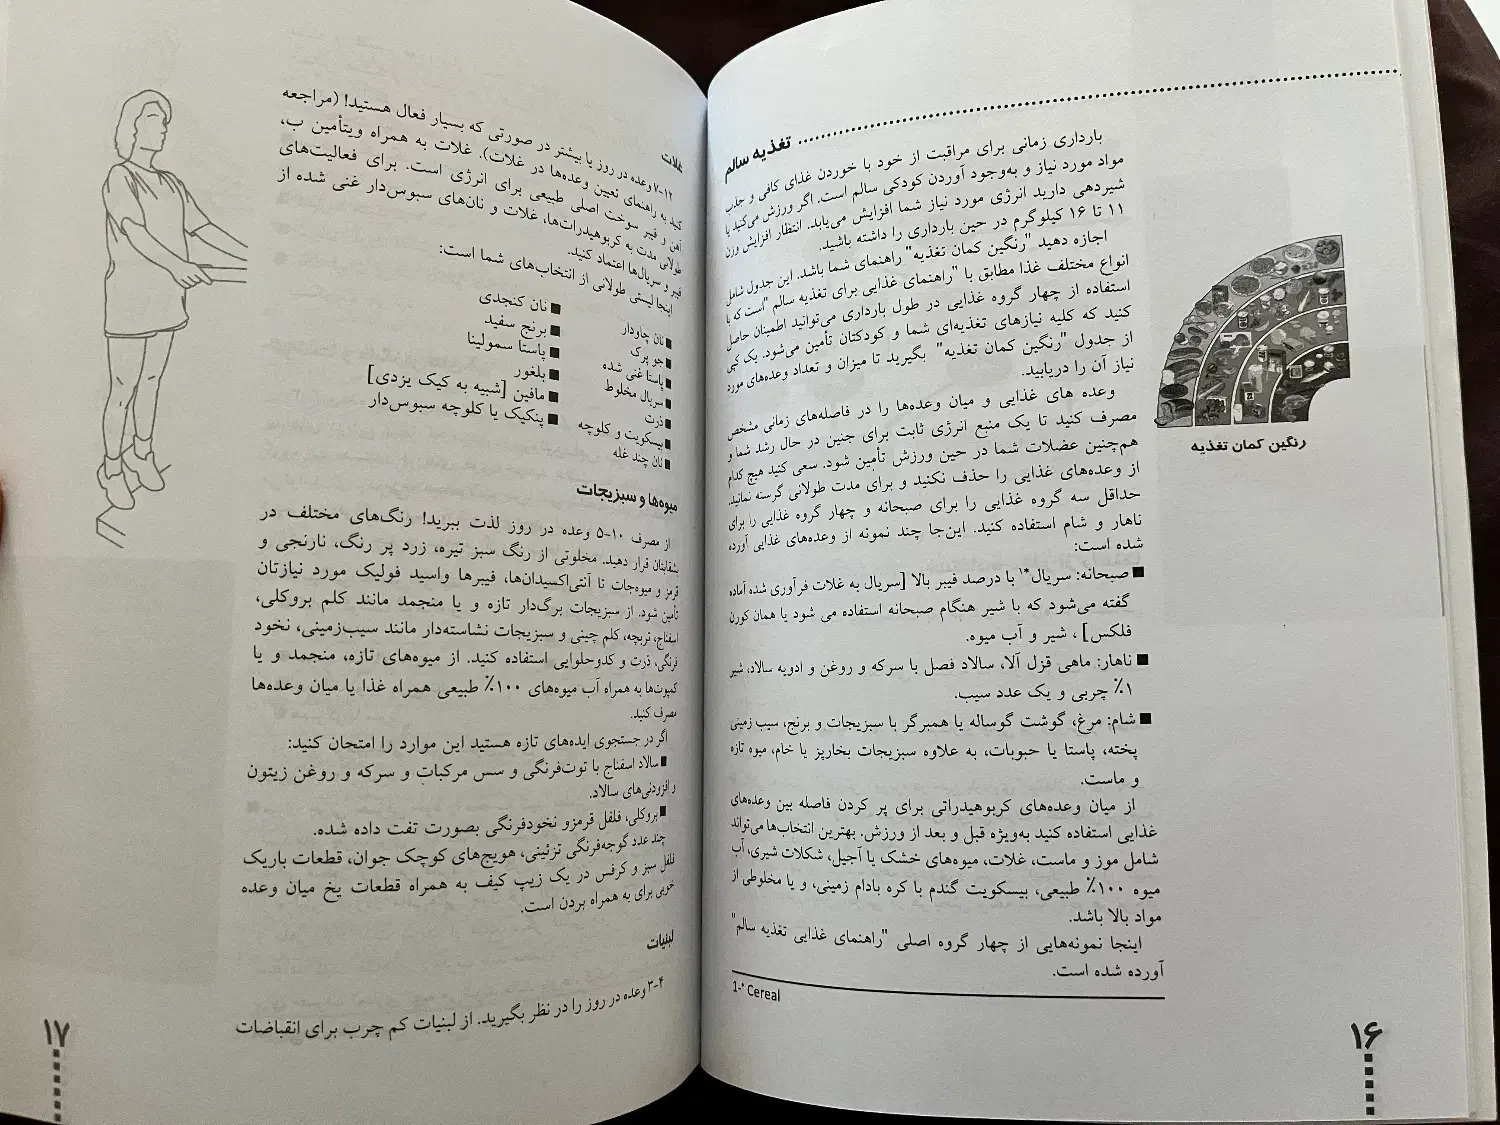 تغذیه سالم
بارداری زمانی برای مراقبت از خود با خوردن غذای کافی و جذب
مواد مورد نیاز و به‌وجود آوردن کودکی سالم است. اگر ورزش می‌کنید یا
شیردهی دارید انرژی مورد نیاز شما افزایش می‌یابد. انتظار افزایش وزن
۱۱ تا ۱۶ کیلوگرم در حین بارداری را داشته باشید.
اجازه دهید "رنگین کمان تغذیه" راهنمای شما باشد. این جدول شامل
انواع مختلف غذا مطابق با "راهنمای غذایی برای تغذیه سالم "است که با
استفاده از چهار گروه غذایی در طول بارداری می‌توانید اطمینان حاصل
کنید که کلیه نیازهای تغذیه‌ای شما و کودکتان تأمین می‌شود. یک کپی
از جدول "رنگین کمان تغذیه" بگیرید تا میزان و تعداد وعده‌های مورد
نیاز آن را دریابید.
وعده های غذایی و میان وعده‌ها را در فاصله‌های زمانی مشخص
مصرف کنید تا یک منبع انرژی ثابت برای جنین در حال رشد شما و
هم‌چنین عضلات شما در حین ورزش تأمین شود. سعی کنید هیچ کدام
از وعده‌های غذایی را حذف نکنید و برای مدت طولانی گرسنه نمانید.
حداقل سه گروه غذایی را برای صبحانه و چهار گروه غذایی را برای
ناهار و شام استفاده کنید. این‌جا چند نمونه از وعده‌های غذایی آورده
شده است:
■ صبحانه: سریال*۱ با درصد فیبر بالا [سریال به غلات فرآوری شده آماده
گفته می‌شود که با شیر هنگام صبحانه استفاده می شود یا همان کورن
فلکس] ، شیر و آب میوه.
■ ناهار: ماهی قزل آلا، سالاد فصل با سرکه و روغن و ادویه سالاد، شیر
۱٪ چربی و یک عدد سیب.
■ شام: مرغ، گوشت گوساله یا همبرگر با سبزیجات و برنج، سیب زمینی
پخته، پاستا یا حبوبات، به علاوه سبزیجات بخارپز یا خام، میوه تازه
و ماست.
از میان وعده‌های کربوهیدراتی برای پر کردن فاصله بین وعده‌های
غذایی استفاده کنید به‌ویژه قبل و بعد از ورزش. بهترین انتخاب‌ها می‌تواند
شامل موز و ماست، غلات، میوه‌های خشک یا آجیل، شکلات شیری، آب
میوه ۱۰۰٪ طبیعی، بیسکویت گندم با کره بادام زمینی، و یا مخلوطی از
مواد بالا باشد.
اینجا نمونه‌هایی از چهار گروه اصلی "راهنمای غذایی تغذیه سالم"
آورده شده است.
1-* Cereal
رنگین کمان تغذیه
۱۶
غلات
۷-۱۲ وعده در روز یا بیشتر در صورتی که بسیار فعال هستید! (مراجعه
کنید به راهنمای تعیین وعده‌ها در غلات). غلات به همراه ویتأمین ب،
آهن و فیبر سوخت اصلی طبیعی برای انرژی است. برای فعالیت‌های
طولانی مدت به کربوهیدرات‌ها، غلات و نان‌های سبوس‌دار غنی شده از
فیبر و سریال‌ها اعتماد کنید.
اینجا لیستی طولانی از انتخاب‌های شما است:
■ نان چاودار
■ جو پرک
■ پاستا غنی شده
■ سریال مخلوط
■ ذرت
■ بیسکویت و کلوچه
■ نان چند غله
■ نان کنجدی
■ برنج سفید
■ پاستا سمولینا
■ بلغور
■ مافین [شبیه به کیک یزدی]
■ پنکیک یا کلوچه سبوس‌دار
میوه‌ها و سبزیجات
از مصرف ۱۰-۵ وعده در روز لذت ببرید! رنگ‌های مختلف در
بشقابتان قرار دهید. مخلوتی از رنگ سبز تیره، زرد پر رنگ، نارنجی و
قرمز و میوه‌جات تا آنتی‌اکسیدان‌ها، فیبرها واسید فولیک مورد نیازتان
تأمین شود. از سبزیجات برگ‌دار تازه و یا منجمد مانند کلم بروکلی،
اسفناج، تربچه، کلم چینی و سبزیجات نشاسته‌دار مانند سیب‌زمینی، نخود
فرنگی، ذرت و کدوحلوایی استفاده کنید. از میوه‌های تازه، منجمد و یا
کمپوت‌ها به همراه آب میوه‌های ۱۰۰٪ طبیعی همراه غذا یا میان وعده‌ها
مصرف کنید.
اگر در جستجوی ایده‌های تازه هستید این موارد را امتحان کنید:
■ سالاد اسفناج با توت‌فرنگی و سس مرکبات و سرکه و روغن زیتون
و افزودنی‌های سالاد.
■ بروکلی، فلفل قرمزو نخودفرنگی بصورت تفت داده شده.
چند عدد گوجه‌فرنگی تزئینی، هویج‌های کوچک جوان، قطعات باریک
فلفل سبز و کرفس در یک زیپ کیف به همراه قطعات یخ میان وعده
خوبی برای به همراه بردن است.
لبنیات
۳-۴ وعده در روز را در نظر بگیرید. از لبنیات کم چرب برای انقباضات
۱۷